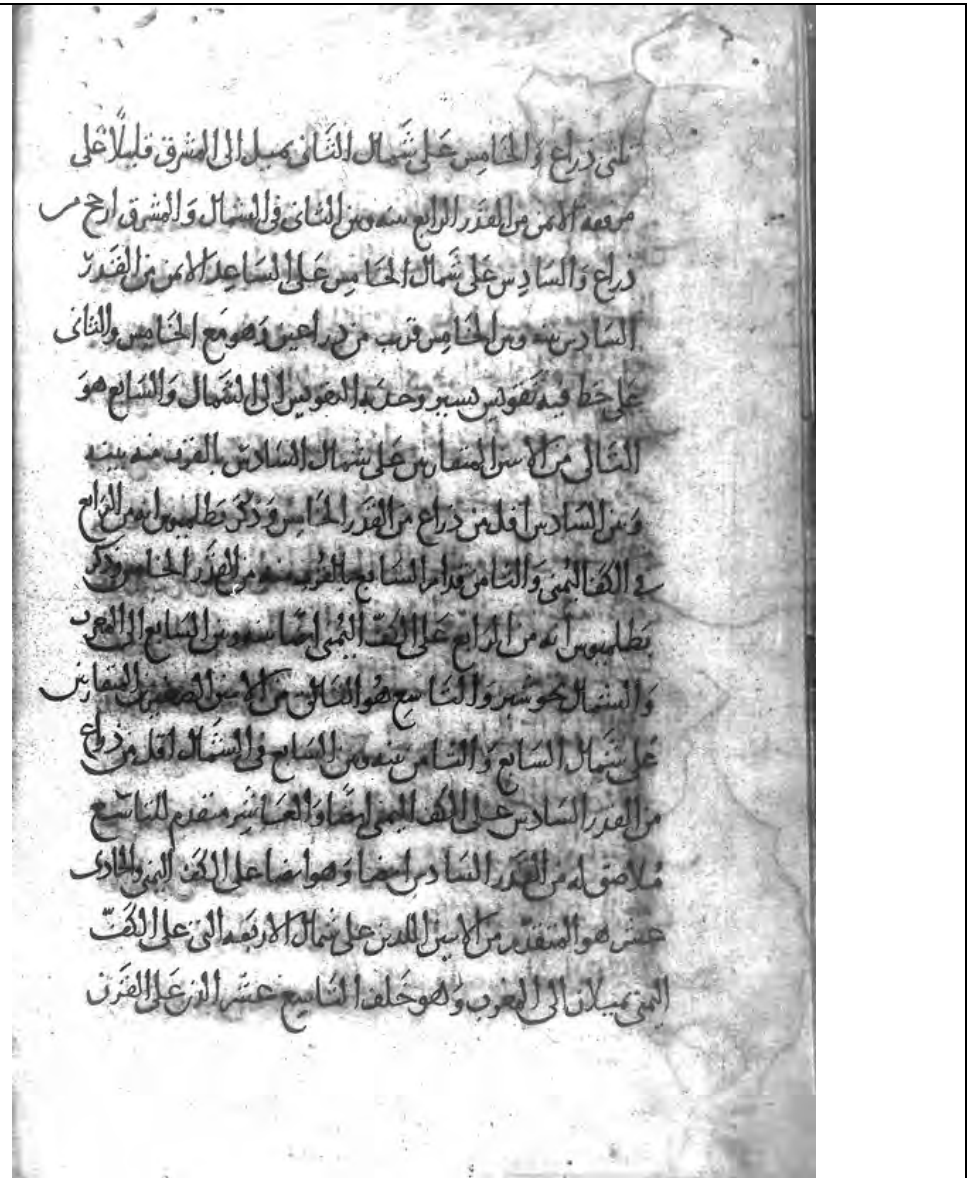 ثلثى ذراع وَالخَامِس عَلى شَمال الثَانى يميل الى المشرق قليلًا على
مرفقه الايمن من القدر الرابع بينه وبين الثانى فى الشمال وَالمشرق ارجح من
ذراع وَالسَادِس عَلى شَمال الخَامِس عَلى السَاعِد الايمن من القَدر
السَادس بينه وبين الخَامِس قريب من ذراعين وَهو مَع الخَامِس والثانى
عَلى خط فيه تَقويس يسير وحدبه التقويس الى الشمال وَالسَابع هوَ
التَالى من الاثنين المتقاربين عَلى شمال السَادس بالقرب منه بينه
وَبين السَادس اقل من ذراع من القدر الخَامِس وَذكر بَطلميوس انه من الرَابع
فى الكف اليُمنى وَالثامن قدام السَابع بالقرب منه من القدر الخامس وذكر
بَطلميوس أنه من الرابع عَلى الكفّ اليُمنى ايضا بينه وبين السَابع الى المغرب
وَالشمال نحو شبر وَالتَاسِع هو التَالى من الاثنين الصغيرين المتقاربين
عَلى شَمال السَابع وَالثامن بينه وبين السَابع فى الشمال اقل من ذراع
من القدر السَادس عَلى الكف اليمنى ايضًا وَالعَاشِر متقدم للتاسع
مُلاصق له من القَدر السَادس ايضا وَهو ايضا على الكف اليمنى والحادى
عشر هو المتقدم من الاثنين اللذين على شمال الاربَعه التى على الكَفّ
اليمنى يميلان الى المغرب وَهو خَلف التَاسِع عشر الذى عَلى القَرن